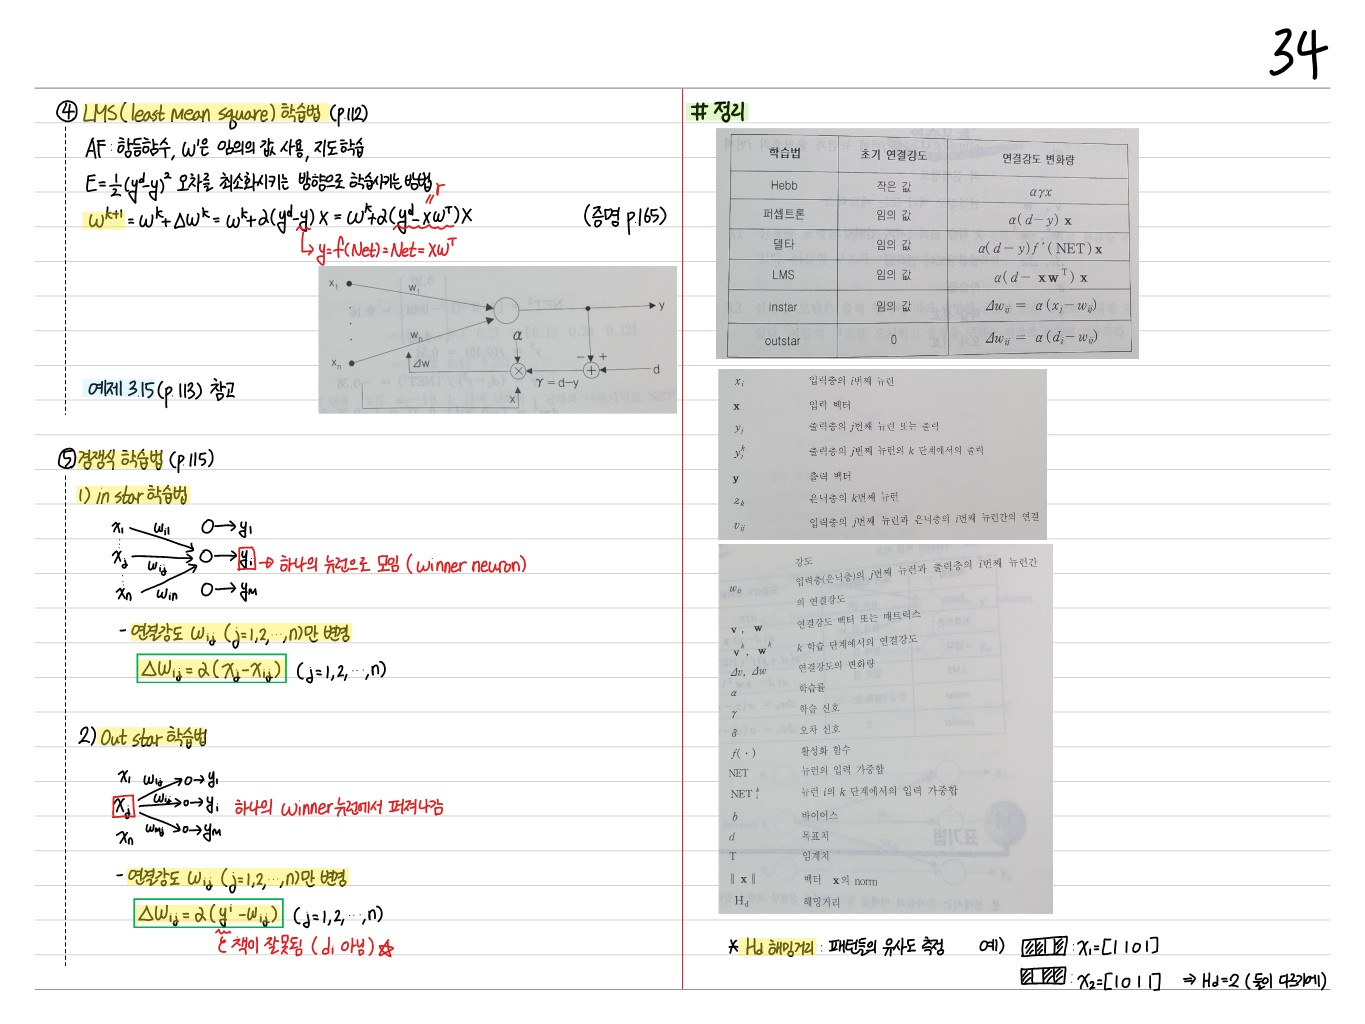 34
④ LMS(least mean square) 학습법 (p.112)
AF : 항등함수, w¹은 임의의 값 사용, 지도학습
E = ½(yᵈ-y)² 오차를 최소화시키는 방향으로 학습시키는 방법
r
wᵏ⁺¹ = wᵏ+Δwᵏ = wᵏ+α(yᵈ-y)x = wᵏ+α(yᵈ-xwᵀ)x (증명 p.165)
↳ y=f(Net)=Net=xwᵀ
x₁ w₁ y
α
wₙ
xₙ Δw − + d
γ = d−y
x
예제 3.15(p.113) 참고
⑤ 경쟁식 학습법 (p.115)
1) in star 학습법
x₁ wᵢ₁ O→y₁
xⱼ wᵢⱼ O→yᵢ → 하나의 뉴런으로 모임 (winner neuron)
xₙ wᵢₙ O→yₘ
- 연결강도 wᵢⱼ (j=1,2,…,n)만 변경
Δwᵢⱼ = α(xⱼ-xᵢⱼ) (j=1,2,…,n)
2) Out star 학습법
x₁ w₁ⱼ O→y₁
xⱼ wᵢⱼ O→yᵢ 하나의 winner뉴런에서 퍼져나감
xₙ wₘⱼ O→yₘ
- 연결강도 wᵢⱼ (j=1,2,…,n)만 변경
Δwᵢⱼ = α(yⁱ-wᵢⱼ) (j=1,2,…,n)
책이 잘못됨 (dᵢ 아님) ☆
# 정리
학습법 초기 연결강도 연결강도 변화량
Hebb 작은 값 αγx
퍼셉트론 임의 값 α(d−y) x
델타 임의 값 α(d−y)f′(NET)x
LMS 임의 값 α(d− xwᵀ) x
instar 임의 값 Δwᵢⱼ = α(xⱼ−wᵢⱼ)
outstar 0 Δwᵢⱼ = α(dᵢ−wᵢⱼ)
xᵢ 입력층의 i번째 뉴런
x 입력 벡터
yⱼ 출력층의 j번째 뉴런 또는 출력
yⱼᵏ 출력층의 j번째 뉴런의 k 단계에서의 출력
y 출력 벡터
zₖ 은닉층의 k번째 뉴런
vᵢⱼ 입력층의 j번째 뉴런과 은닉층의 i번째 뉴런간의 연결
강도
wᵢⱼ 입력층(은닉층)의 j번째 뉴런과 출력층의 i번째 뉴런간
의 연결강도
v, w 연결강도 벡터 또는 매트릭스
vᵏ, wᵏ k 학습 단계에서의 연결강도
Δv, Δw 연결강도의 변화량
α 학습률
γ 학습 신호
δ 오차 신호
f(·) 활성화 함수
NET 뉴런의 입력 가중합
NETᵢᵏ 뉴런 i의 k 단계에서의 입력 가중합
b 바이어스
d 목표치
T 임계치
‖x‖ 벡터 x의 norm
H_d 해밍거리
* Hd 해밍거리 : 패턴들의 유사도 측정 예) : x₁=[1 1 0 1]
: x₂=[1 0 1 1] ⇒ Hd=2 (둘이 다르기에)